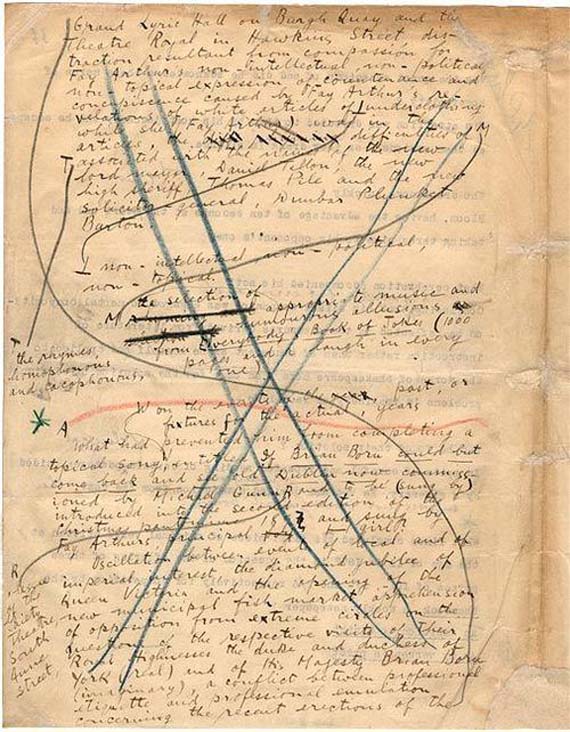 Grand Lyric Hall on Burgh Quay and the
Theatre Royal in Hawkins Street, dis-
traction resultant from compassion for
Fay Arthur's non-intellectual, non-political
non-topical expression of countenance and
concupiscence caused by Fay Arthur's re-
velations of white articles of underclothing
while she (Fay Arthur) was in the
articles, the difficulties of
associated with the names of the new
lord mayor, Daniel Tallon, the new
high sheriff, Thomas Pile and the new
solicitor general, Dunbar Plunket
Barton
I non-intellectual, non-political,
non-topical
M the selection of appropriate music and
humourous allusions
from Everybody's Book of Jokes (1000
pages and a laugh in every
one)
T the rhymes,
homophonous
and cacophonous,
A W on the events of the past, or
fixtures for the actual, years
What had prevented him from completing a
topical song, entitled If Brian Boru could but
come back and see old Dublin now commiss-
ioned by Michael Gunn R and to be (sung by)
introduced into the second edition of the
Christmas pantomime and sung by
Fay Arthur, principal girl?
Oscillation between events of local and of
imperial interest, the diamond jubilee of
Queen Victoria and the opening of the
new municipal fish market apprehension
of opposition from extreme circles on the
question of the respective visits of Their
Royal Highnesses the duke and duchess of
York (real) and of His Majesty Brian Boru
(imaginary), a conflict between professional
etiquette and professional emulation
concerning the recent erections of the
R
of the
Gaiety
Theatre,
South
King
street,